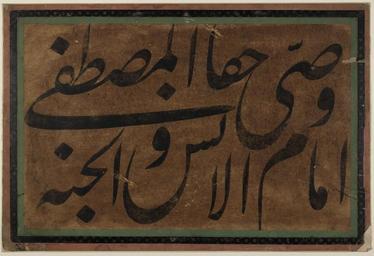 وصی المصطفی حقا
امام الانس و الجنه